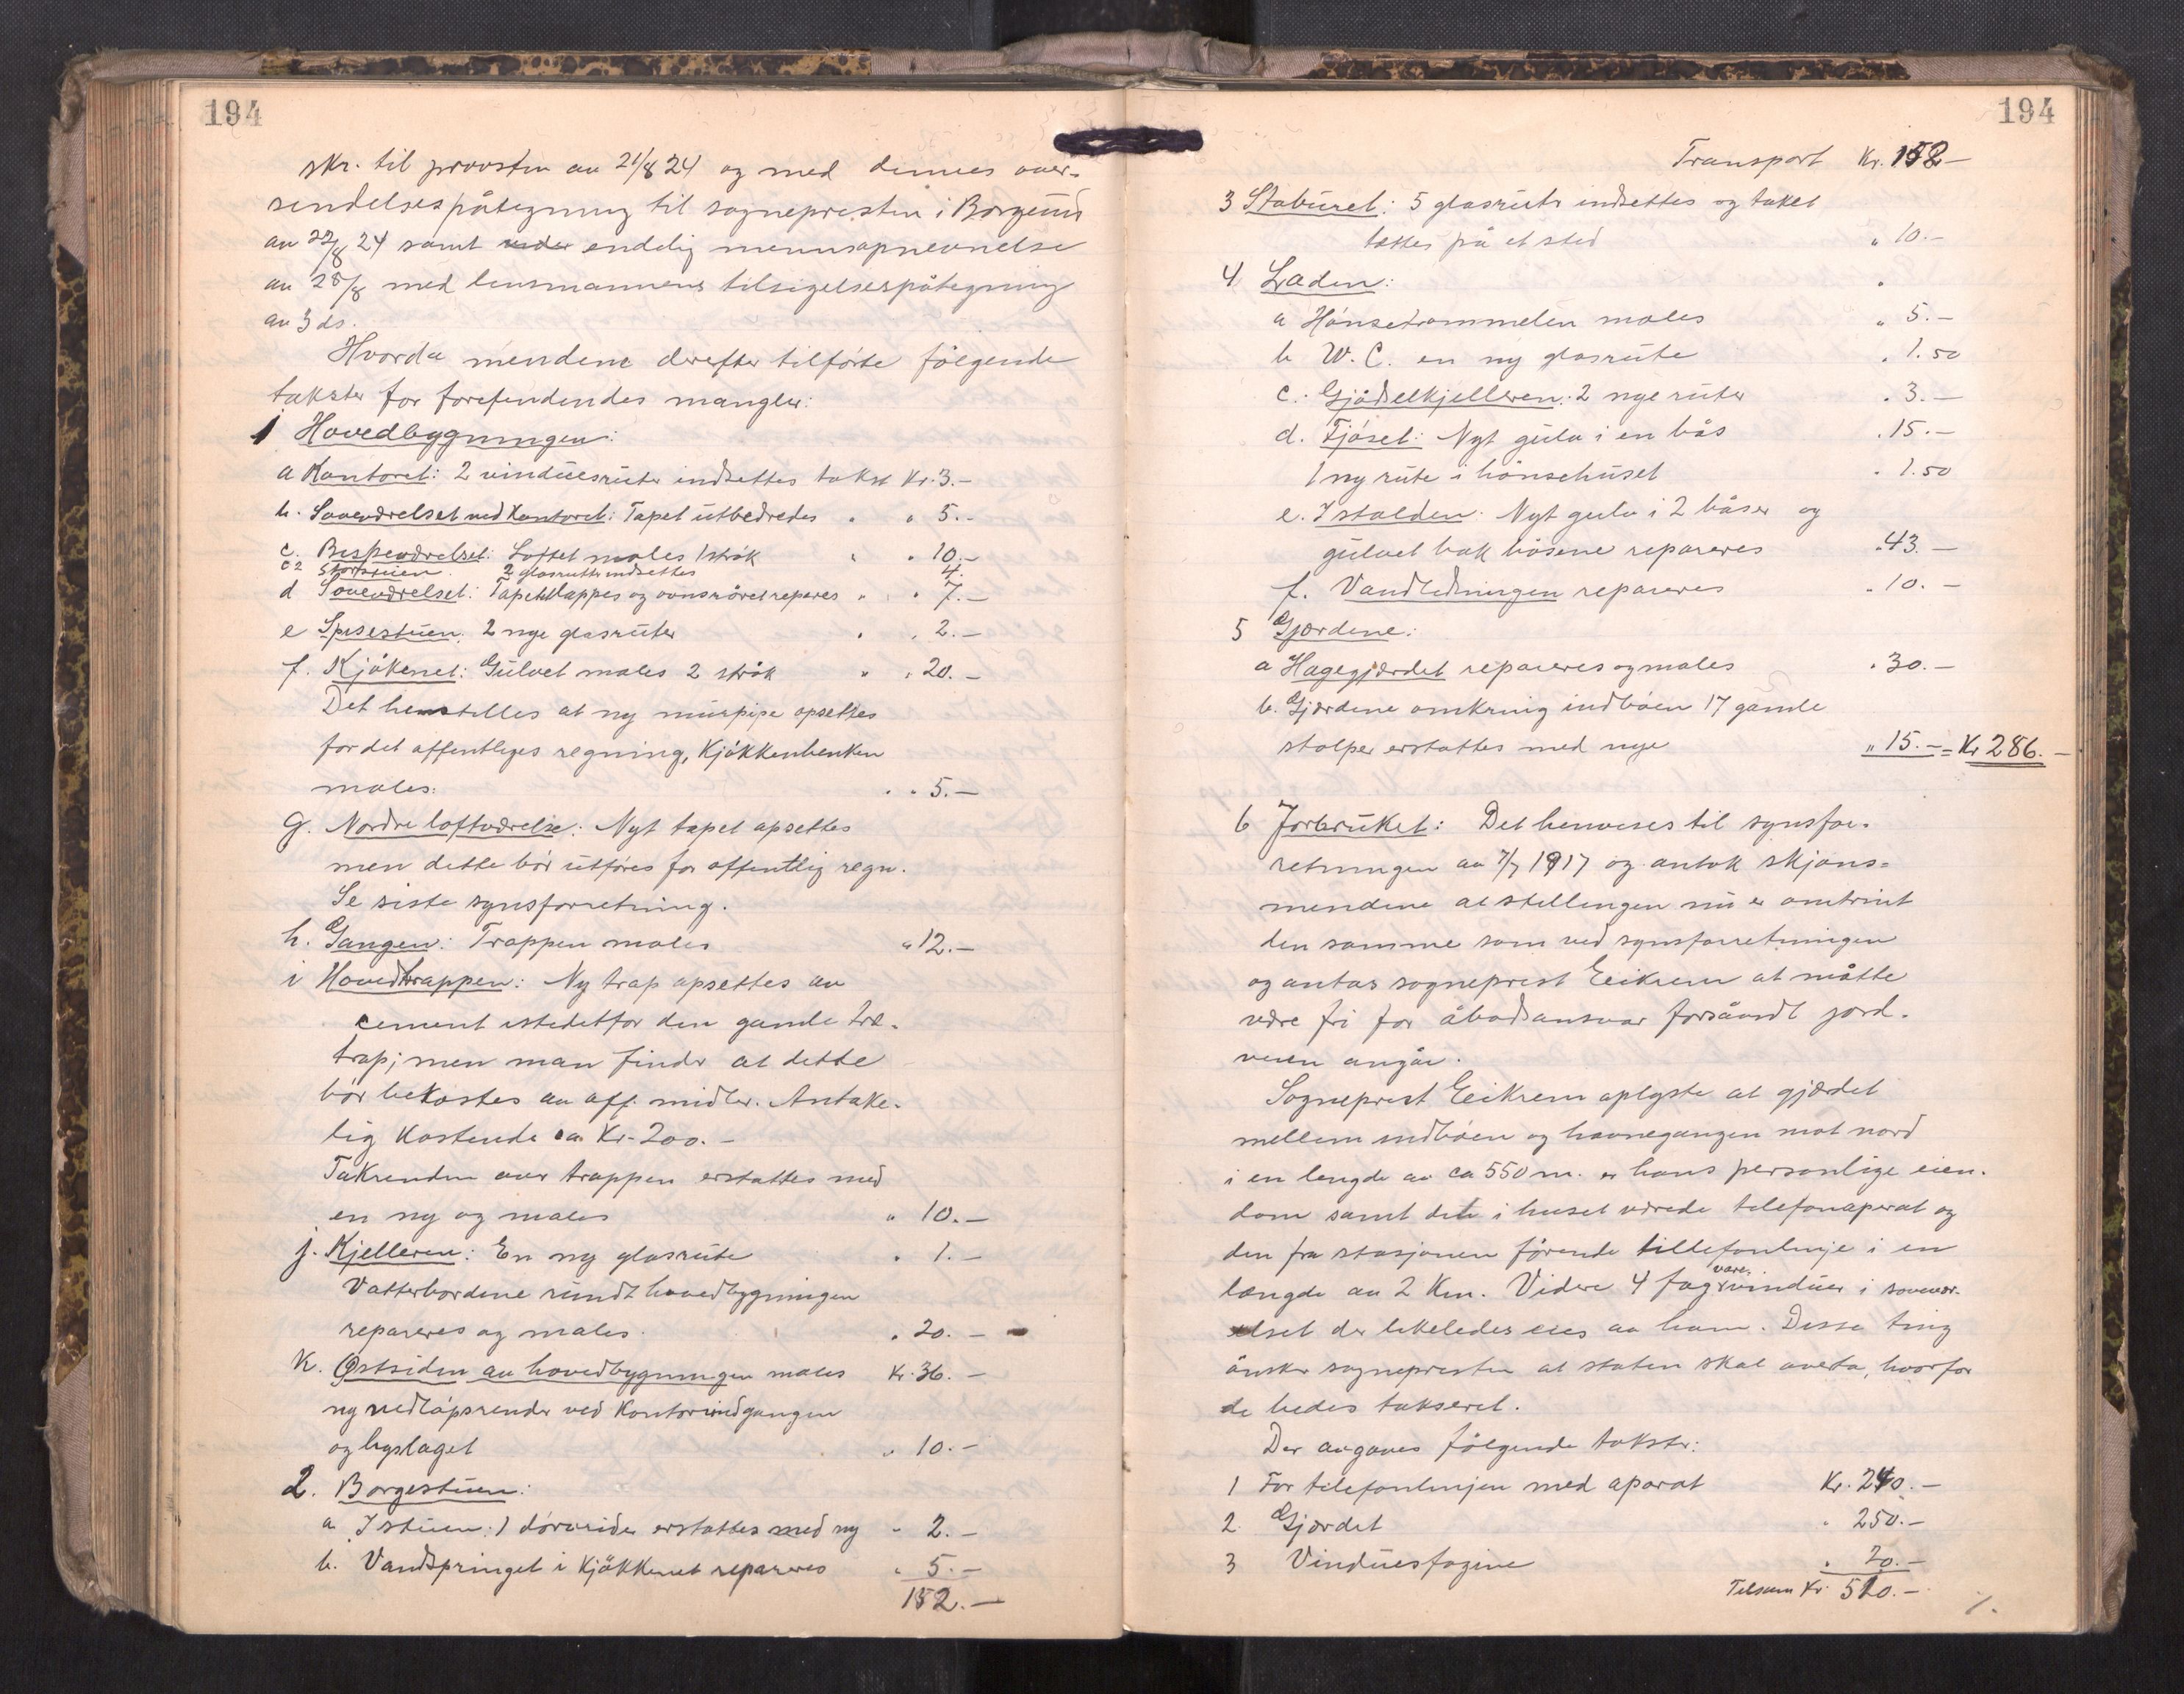 194
skr. til provsten av 21/8 24 og med dennes over-
sendelsespåtegning til sognepresten i Borgund
av 22/8 24 samt endelig mennsopnevnelse
av 25/8 med lensmannens tilsigelsespåtegning
av 3 ds.
Hvorda mendene derefter tilførte følgende
takster for forefindendes mangler:
1 Hovedbygningen:
a Kontoret: 2 vinduesruter indsettes takst Kr. 3.-
b. Soveværelset ved Kontoret: Tapet utbedredes " " 5.-
c. Bispeværelset: Loftet males 1 strøk " " 10.-
c2 Storstuen. 2 glasruter indsettes 4.
d Soveværelset: Tapet lappes og ovnsrøret repares " " 7.-
e Spisestuen: 2 nye glasruter " " 2.-
f. Kjøkenet: Gulvet males 2 strøk " " 20.-
Det henstilles at ny murpipe opsettes
for det offentliges regning, Kjøkkenbenken
males. " " 5.-
g. Nordre loftværelse: Nyt tapet opsettes
men dette bør utføres for offentlig regn.
Se siste synsforretning.
h. Gangen: Trappen males " 12.-
i Hovedtrappen: Ny trap opsettes av
cement istedetfor den gamle træ-
trap; men man finder at dette
bør bekostes av off. midler. Antake-
lig kostende ca Kr. 200.-
Takrenden over trappen erstattes med
en ny og males " 10.-
j. Kjelleren: En ny glasrute " 1.-
Vatterbordene rundt hovedbygningen
repareres og males. " 20.-
K. Østsiden av hovedbygningen males Kr. 36.-
ny nedløpsrender ved Kontorindgangen
og bislaget " 10.-
2. Borgestuen:
a I stuen: 1 dørvrider erstattes med ny " 2.-
b. Vandspringet i Kjøkkenet repareres " 5.-
152.-
194
Transport Kr. 152-
3 Staburet: 5 glasruter indsettes og taket
tettes på et sted " 10.-
4 Laden: "
a Hønsetrommelen males " 5.-
b W.C. en ny glasrute " 1.50
c. Gjødselkjelleren: 2 nye ruter " 3.-
d. Fjøset: Nyt gulv i en bås " 15.-
1 ny rute i hønsehuset " 1.50
e. I stalden. Nyt gulv i 2 båser og
gulvet bak båsene repareres " 43.-
f. Vandledningen repareres " 10.-
5 Gjærdene:
a Hagegjærdet repareres og males " 30.-
b. Gjærdene omkring indbøen 17 gamle
stolper erstattes med nye " 15.- = Kr 286.-
6 Jorbruket: Det henvises til synsfor-
retningen av 7/7 1917 og antok skjøns-
mendene at stellingen nu er omtrint
den samme som ved synsforretningen
og antas sogneprest Eeikrem at måtte
være fri for åbodsansvar forsåvidt jord-
veien angår.
Sogneprest Eeikrem oplyste at gjærdet
mellem indbøen og havnegangen mot nord
i en lengde av ca 550 m. er hans personlige eien-
dom samt det i huset værede telefonaperat og
den fra stasjonen førende tillefonlinje i en
længde av 2 Km. Videre 4 fag vare vinduer i sovevær-
elset der likeledes eies av ham. Disse ting
ønsker sognepresten at staten skal overta, hvorfor
de bedes taksert.
Der avgaves følgende takster:
1 For telefonlinjen med aparat Kr. 240.-
2 Gjærdet " 250.-
3 Vinduesfagene " 20.-
Tilsam Kr. 510.-